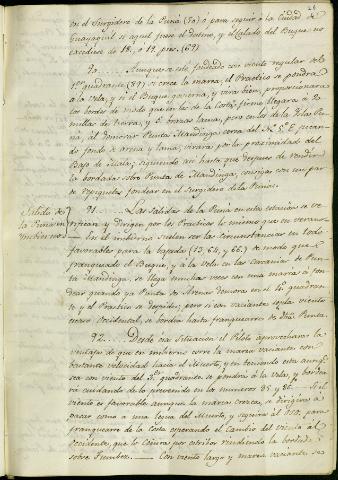 en el Surgidero de la Puná (50) ó para seguir á la Ciudad de
Guayaquil si aquel fuere el destino, y el Calado del Buque no
excediere de 18, ó 19, pies. (69)
90.... Aunque se esté fondeado con viento regular del
1er quadrante (54) si crece la marea, el Practico se pondrá
á la Vela, y si el Buque govierna, y vira bien, proporcionará
los bordos de modo que en el de la Costa firme llegará á dos
millas de Tierra, y 5 brazas lama, pero en los de la Isla Pu-
ná, al demorar Punta Mandinga cerca del N. E. pican-
do fondo de arena y lama, virará por la proximidad del
Bajo de Mala; siguiendo asi hasta que despues de rendir
la bordada sobre Punta de Mandinga, consiga con un par
de repiquetes fondear en el Surgidero de la Puná.
Salida de
la Puná en
Imbierno
91.... Las Salidas de la Puná en esta estacion se ve-
rifican y dirigen por los Practicos lo mismo que en verano
En el imbierno suelen ser las circunstancias en todo
favorables para la bajada (13, 64, y 66) de modo que
franqueado el Buque, y á la vela en las cercanias de Pun-
ta Mandinga, se llega muchas veces con una marea á fon-
dear quando ya Punta de Arenas demora en el 4º quadran-
te y el Practico se despide; pero si con vaciante sopla viento
recio Occidental, se bordea hasta franquearse de dha Punta.
92.... De esa Situacion el Piloto aprovechará la
ventaja de que en imbierno corre la marea vaciante con
bastante velocidad hacia el Muerto, y en teniendo esta aunq.e
sea con viento del 3er quadrante se pondrá á la vela, y bordea-
rá cuidando de lo prevenido en los numeros 35 y 36. Si el
viento es favorable aunque la marea crezca, se dirigirá á
pasar como á una legua del Muerto, y seguirá al OSO. para
franquearse de la Costa esperando el Cambio del viento al
Occidente, que lo Ceñirá por estribor rindiendo la bordada
sobre Tumbez. Con viento largo y marea vaciante se